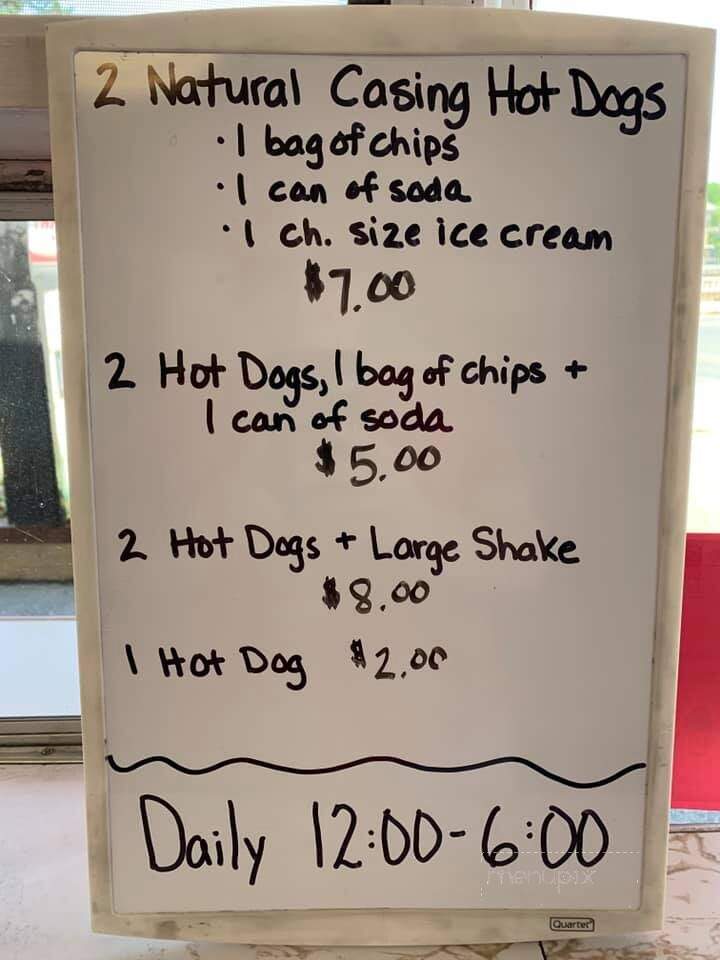 2 Natural Casing Hot Dogs
·1 bag of chips
·1 can of soda
·1 ch. size ice cream
$7.00
2 Hot Dogs, 1 bag of chips +
1 can of soda
$5.00
2 Hot Dogs + Large Shake
$8.00
1 Hot Dog $2.00
Daily 12:00-6:00
menupix
Quartet